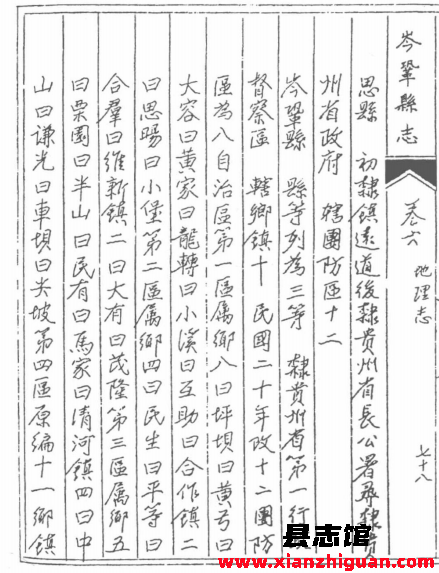 岑鞏縣志
卷六 地理志 七十八
思縣 初隸鎮遠道後隸貴州省長公署尋隸貴
州省政府 轄團防區十二
岑鞏縣 縣等列為三等 隸貴州省第一行政
督察區 轄鄉鎮十 民國二十年改十二團防
區為八自治區第一區屬鄉八曰坪壩曰黃弓曰
大容曰黃家曰龍轉曰小溪曰互助曰合作鎮二
曰思暘曰小堡第二區屬鄉四曰民生曰平等曰
合羣曰維新鎮二曰大有曰茂隆第三區屬鄉五
曰栗園曰半山曰民有曰馬家曰清河鎮四曰中
山曰谦光曰車壩曰尖坡第四區原編十一鄉鎮
县志馆
www.xianzhiguan.com